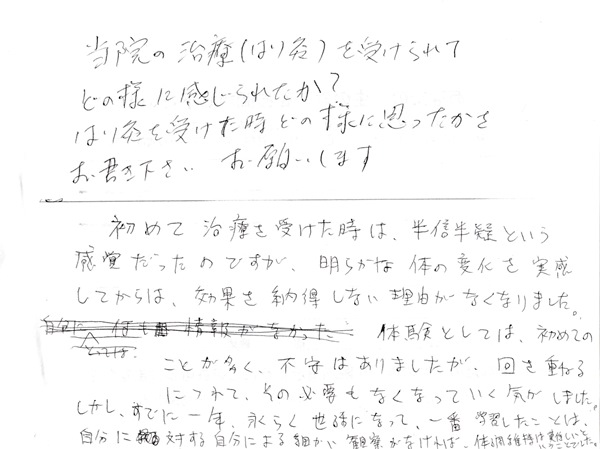 当院の治療(はり灸)を受けられて
どの様に感じられたか?
はり灸を受けた時どの様に思ったかを
お書き下さい お願いします
初めて治療を受けた時は、半信半疑という
感覚だったのですが、明らかな体の変化を実感
してからは、効果を納得しない理由がなくなりました。
自分に 何も 情報がなかった 体験としては、初めての
とっては
ことが多く、不安はありましたが、回を重ねる
につれて、その必要もなくなっていく気がしました。
しかし、すでに一年、永らく世話になって、一番学習したことは、
自分に対する自分による細かい観察がなければ、体調維持は難しいと
いうことでした。